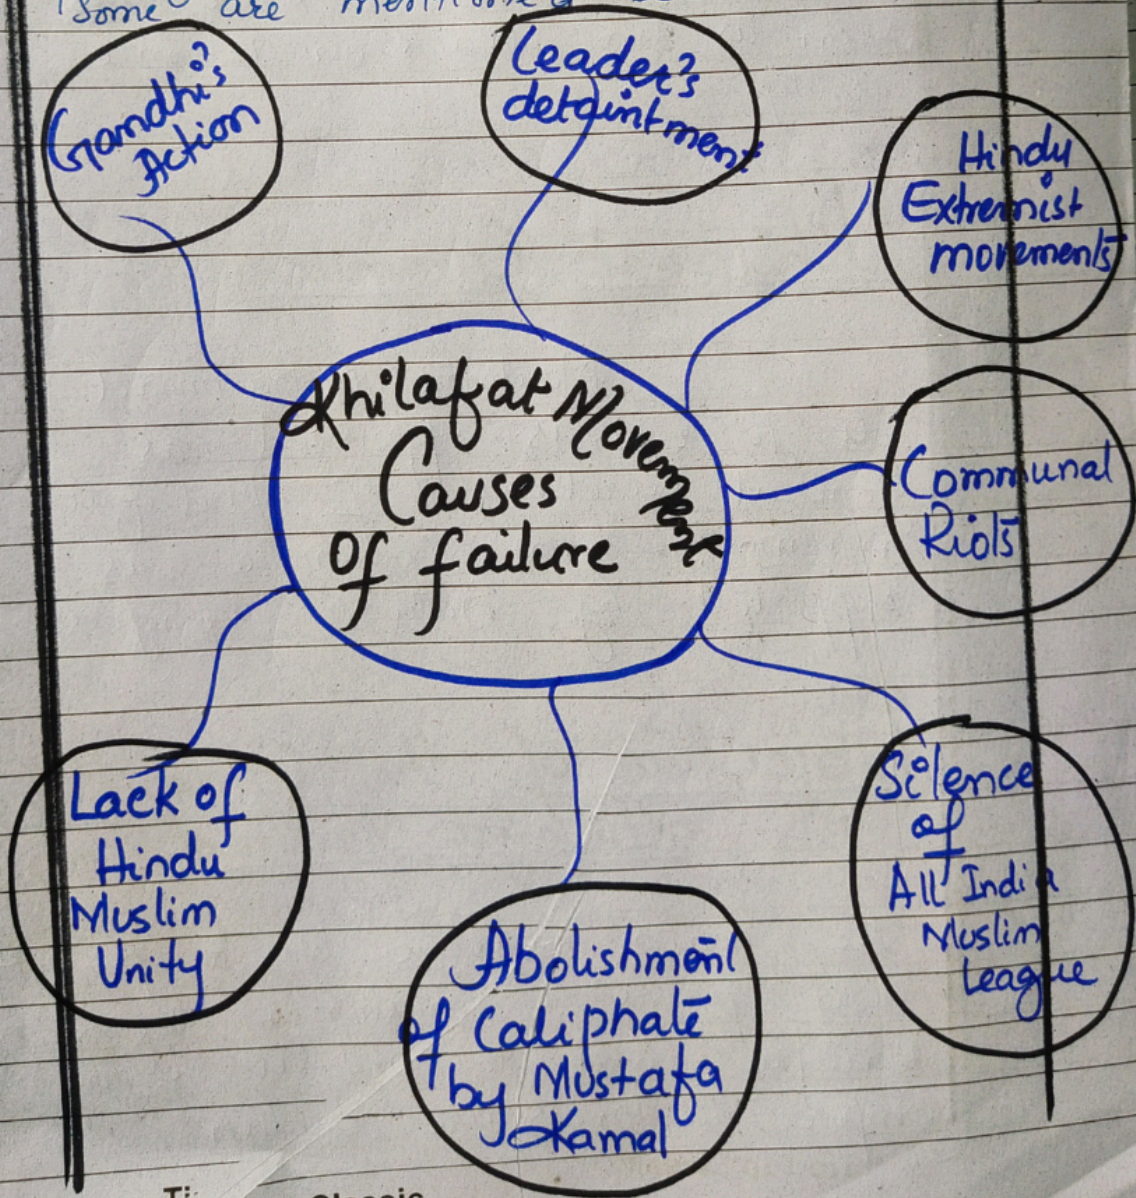 Some are mentioned
Gandhi's
Action
Leader's
detaintment
Hindu
Extremist
movements
Khilafat Movement
Causes
Of failure
Communal
Riots
Lack of
Hindu
Muslim
Unity
Abolishment
of Caliphate
by Mustafa
Kamal
Silence
of
All India
Muslim
League